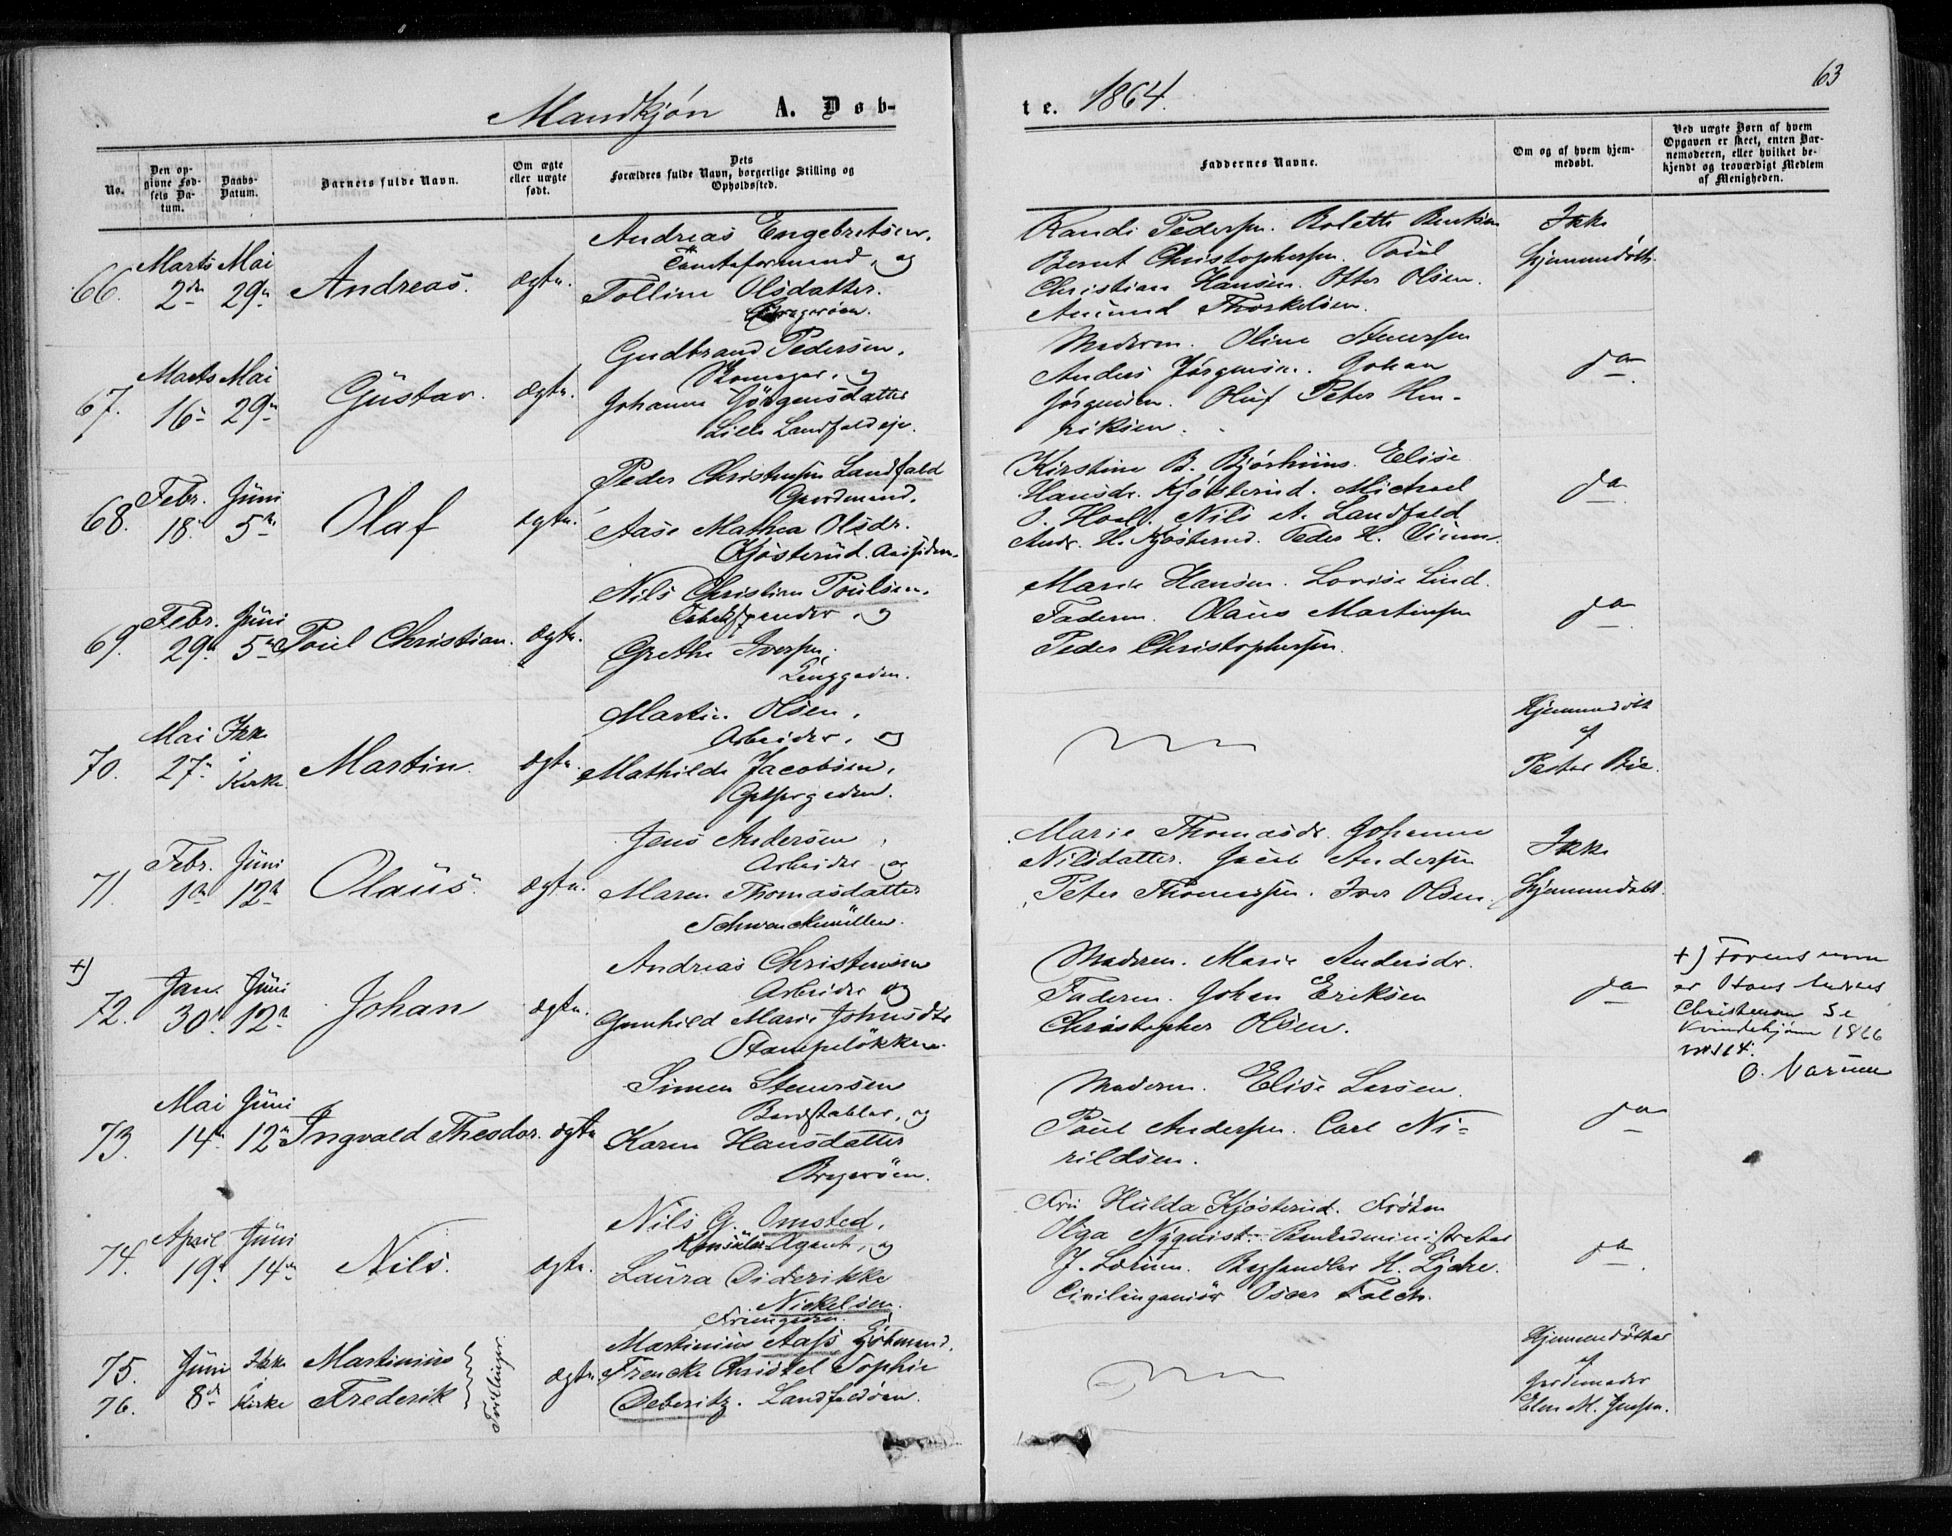 Mandkjøn A. Døb-
te. 1864.
63
No.
Den opgivne Fødsels Datum.
Daabs-Datum.
Barnets fulde Navn.
Om ægte eller uægte født.
Dets Forældres fulde Navn, borgerlige Stilling og Opholdssted.
Faddernes Navne.
Om og af hvem hjemmedøbt.
Ved uægte Børn af hvem Opgaven er skeet, enten Barnemoderen, eller hvilket bekjendt og troværdigt Medlem af Menigheden.
66. Marts 2den Mai 29n Andreas. ægte.
Andreas Engebretsen,
Tomteformand, og
Tolline Olsdatter.
Bragerøen.
Randi Pedersen. Bolette Bentsen
Bernt Christophersen. Poul
Christian Hansen. Otter Olsen.
Amund Thorkelsen.
Ikke
hjemmedøbt.
67. Marts 16n Mai 29n Gustav. ægte.
Gudbrand Pedersen,
og
Johanne Jörgensdatter
Lille Landfaldeje.
Moderen. Oline Steversen
Anders Jörgensen. Johan
Jörgensen. Oluf Peter Hen-
riksen.
do
68. Febr. 18. Juni 5te Olaf ægte.
Peder Christensen Landfald
Gaardmand,
Aase Mathea Olsdr.
Kjøsterud. Aassiden.
Kirstine B. Bjørhuus. Elise
Hansdr. Kjøsterud. Michael
O. Hoel. Nils A. Landfald
Andr. H. Kjøsterud. Peder H.
do
69. Febr. 29. Juni 5te Poul Christian. ægte.
Nils Christian Poulsen,
Tobakspinder, og
Grethe Iversen,
Lenggaden.
Marie Hansen. Lovise Lind.
Faderen. Olaus Martinsen
Peder Christophersen.
do
70. Mai 27n Ikke i Kirke Martin. ægte.
Martin Olsen,
Arbeider, og
Mathilde Jacobsen,
Hjemmedøbt
af
Pastor Bie.
71. Febr. 1te Juni 12te Olaus. ægte.
Jens Andersen,
Arbeider og
Maren Thomasdatter
Schwenckmöllen.
Marie Thomasdr. Johanne
Nilsdatter. Jacob Andersen
Peter Thomassen. Iver Olsen
Ikke
hjemmedøbt.
+)
72. Jan. 30t Juni 12te Johan ægte.
Andreas Christensen
Arbeider og
Gunhild Marie Johnsdtr
Stampeløkken.
Moderen. Marie Andersdr.
Faderen. Johan Eriksen
Christopher Olsen.
do
+) Forens navn
er Hans Andreas
Christensen Se
Kvindekjøn 1866
No 164.
O.
73. Mai 14n Juni 12te Ingvald Theodor. ægte
Simen Steversen
Bordstabler, og
Karen Hansdatter
Bragerøen.
Moderen. Elise Larsen.
Poul Andersen. Carl Ni-
rildsen.
do
74. April 19t Juni 14n Nils. ægte.
Nils G. Omsted,
Konsular Agent, og
Laura Diderikke
Nickelsen.
Fru Hulda Kjøsterud. Frøken
Olga Nyquist. Bankadministrator
J. Lorum. Boghandler H. Lyche.
Civilingeniör Oscar Falch.
do
75. 76. Juni 8d Ikke i Kirke Martinius Frederik Tvillinger. ægte.
Martinius Aass Sjömand,
Frencke Christel Sophie
Deberitz. Landfaldøen.
Hjemmedøbte
af
Jordemoder
Elen M. Jensen.